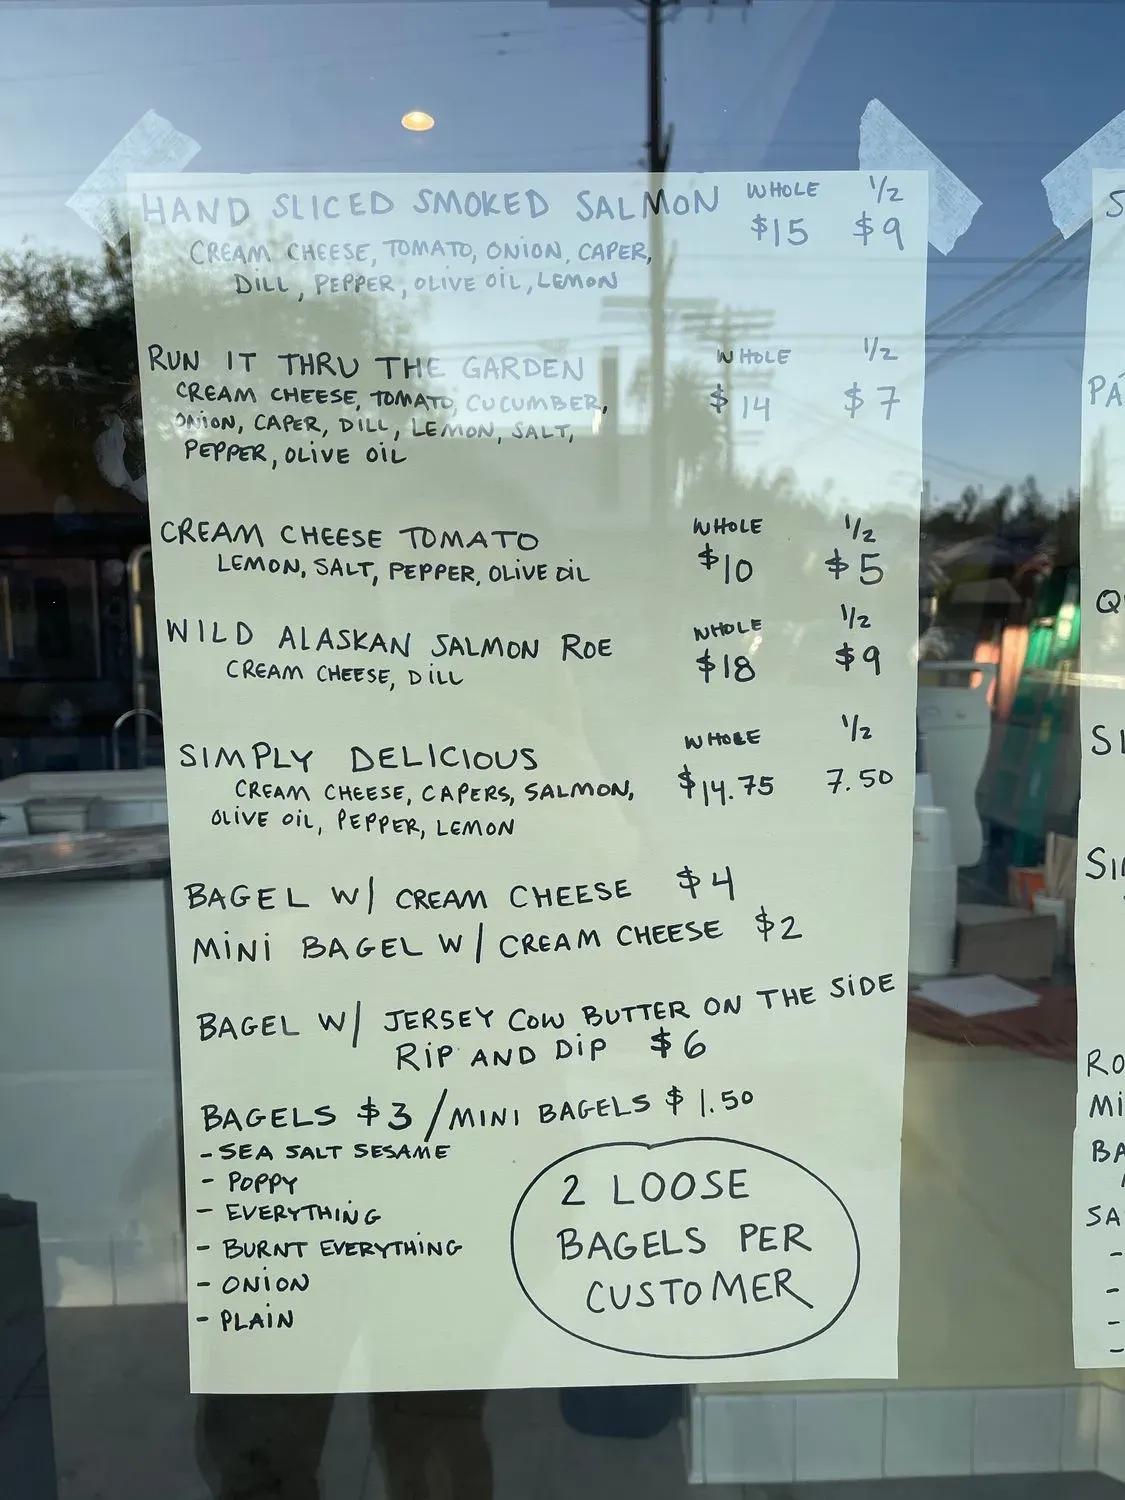 HAND SLICED SMOKED SALMON WHOLE 1/2
$15 $9
CREAM CHEESE, TOMATO, ONION, CAPER,
DILL, PEPPER, OLIVE OIL, LEMON
RUN IT THRU THE GARDEN WHOLE 1/2
CREAM CHEESE, TOMATO, CUCUMBER, $14 $7
ONION, CAPER, DILL, LEMON, SALT,
PEPPER, OLIVE OIL
CREAM CHEESE TOMATO WHOLE 1/2
LEMON, SALT, PEPPER, OLIVE OIL $10 $5
WILD ALASKAN SALMON ROE WHOLE 1/2
CREAM CHEESE, DILL $18 $9
SIMPLY DELICIOUS WHOLE 1/2
CREAM CHEESE, CAPERS, SALMON, $14.75 7.50
OLIVE OIL, PEPPER, LEMON
BAGEL W/ CREAM CHEESE $4
MINI BAGEL W/ CREAM CHEESE $2
BAGEL W/ JERSEY COW BUTTER ON THE SIDE
RIP AND DIP $6
BAGELS $3 / MINI BAGELS $1.50
- SEA SALT SESAME
- POPPY
- EVERYTHING
- BURNT EVERYTHING
- ONION
- PLAIN
2 LOOSE
BAGELS PER
CUSTOMER